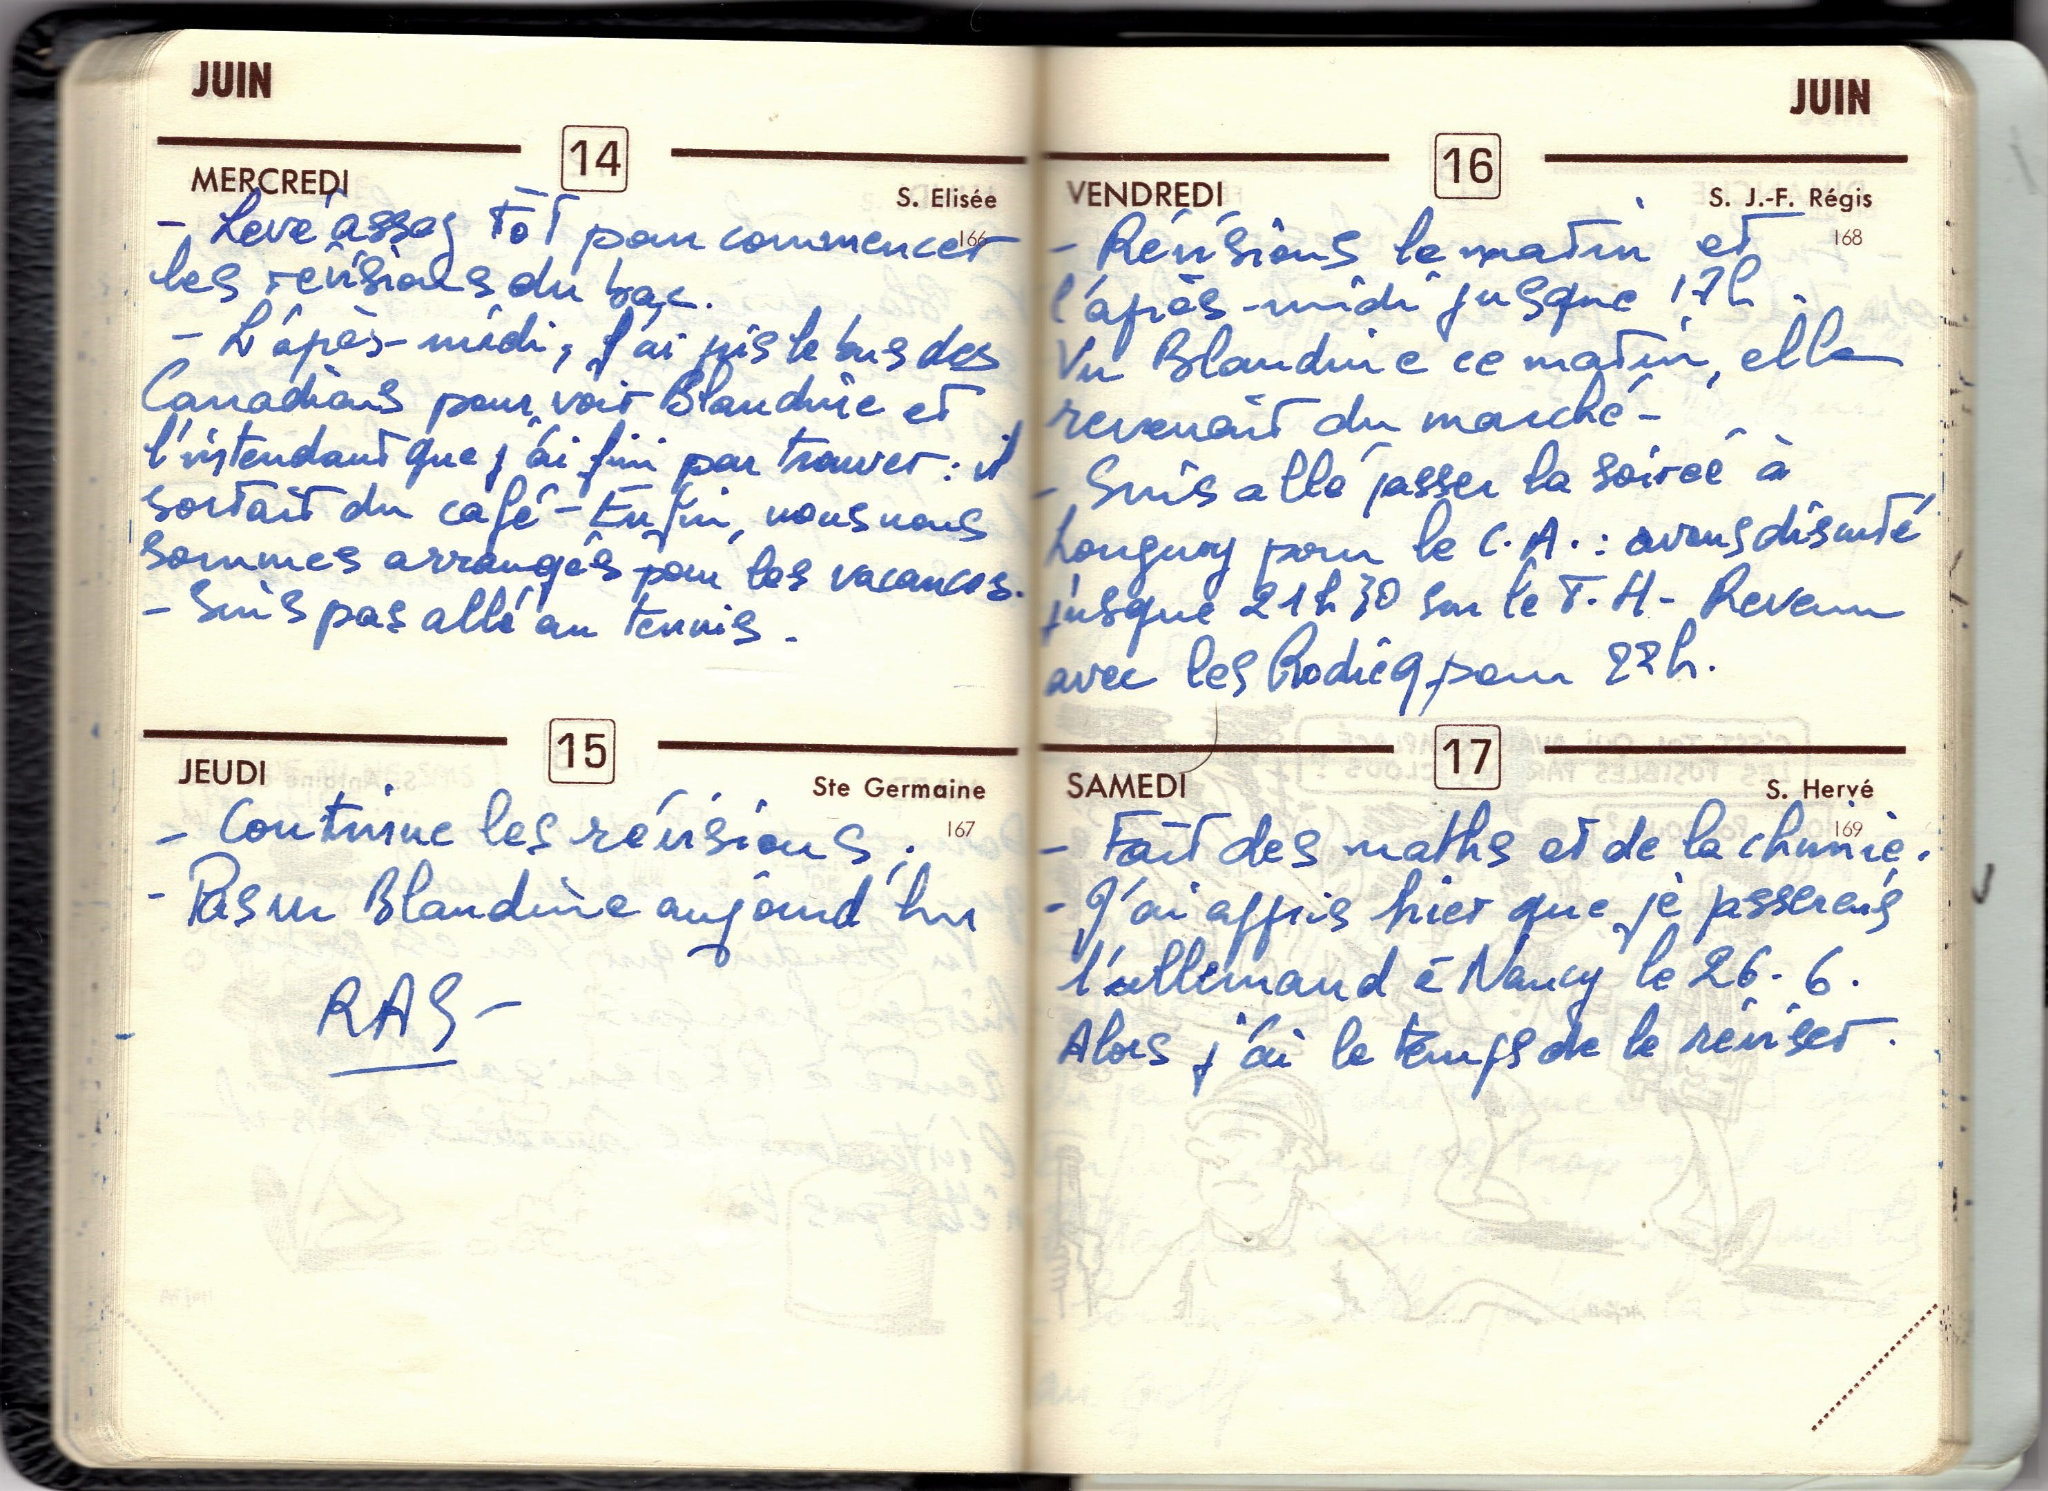 JUIN
14
MERCREDI
S. Elisée
166
- Levé assez Tôt pour commencer
les révisions du bac.
- L'après-midi, j'ai pris le bus des
Canadians pour voir Blandine et
l'intendant que j'ai fini par trouver : il
sortait du café - Enfin, nous nous
sommes arrangés pour les vacances.
- Suis pas allé au tennis.
15
JEUDI
Ste Germaine
167
- Continue les révisions.
- Pas vu Blandine aujourd'hui
RAS -
JUIN
16
VENDREDI
S. J.-F. Régis
168
- Révisions le matin et
l'après-midi jusque 17h.
Vu Blandine ce matin, elle
revenait du marché -
- Suis allé passer la soirée à
Longwy pour le C.A. : avons discuté
jusque 21h30 sur le T.H - Revenu
avec les pour 22h.
17
SAMEDI
S. Hervé
169
- Fait des maths et de la chimie.
- J'ai appris hier que je passerais
l'allemand à Nancy le 26-6.
Alors j'ai le temps de le réviser.